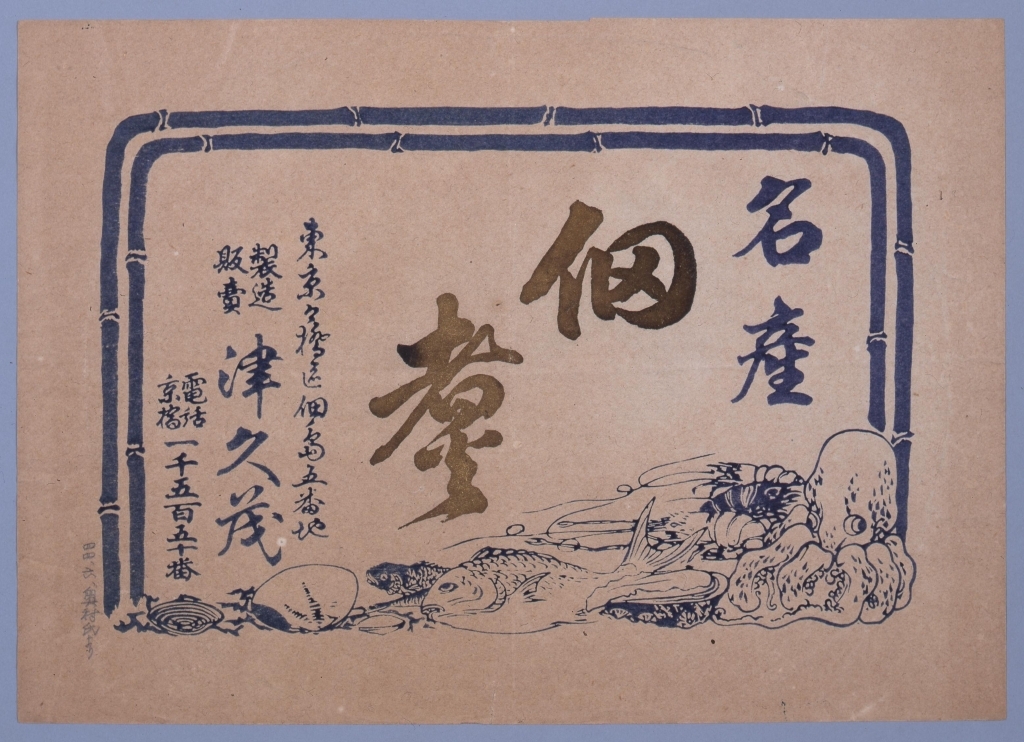 名産
佃煮
東京々橋区佃島五番地
製造
販売
津久茂
電話
京橋
一千五百五十番